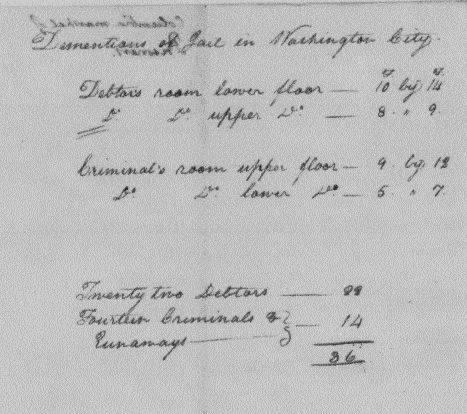 Dementions of Jail in Washington City.
Debtors room lower floor — 10 by 14
Do Do upper Do — 8 " 9
Criminal's room upper floor — 9 by 12
Do Do lower Do — 5 " 7
Twenty two Debtors — 22
Fourteen Criminals & } — 14
Runaways
36